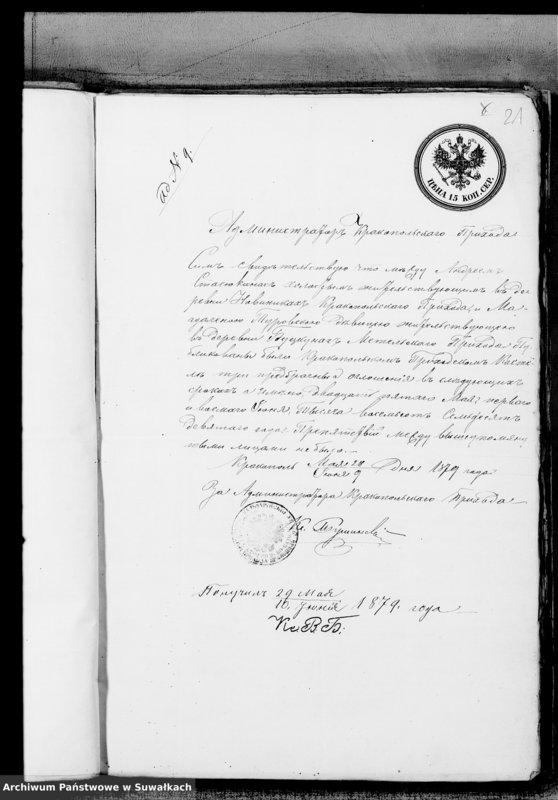 21
ад N 9.
ЦѢНА 15 КОП. СЕР.
Администраторъ Кракопольскаго Прихода
Симъ свидѣтельствую что между Андреемъ
холостымъ жительствующимъ въ де-
ревни Новиникахъ Кракопольскаго Прихода и Ма-
Туровского дѣвицею жительствующею
въ деревни Метельского Прихода Пу-
бликованы были Кракопольскимъ Приходскомъ Косте-
лѣ три предбрачныя оглашенія въ слѣдующихъ
срокахъ а имянно, двадцать пятаго Мая, перваго
и восьмаго Іюня, тысяча восемьсотъ Семьдесятъ
девятаго года. Препятствій между вышеупомяну-
тыми лицами не было.
Кракополь Мая 28 Іюня 9 дня 1879 года
За Администратора Кракопольскаго Прихода
Кс.
Получилъ 29 Мая
10. Іюня 1879. года
Кс. В. Б.
Archiwum Państwowe w Suwałkach